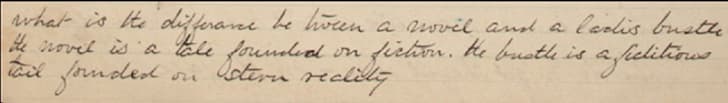 what is the differance be tween a novel and a ladis bustle
the novel is a tale founded on fiction. the bustle is a fictitious
tail founded on stern reality